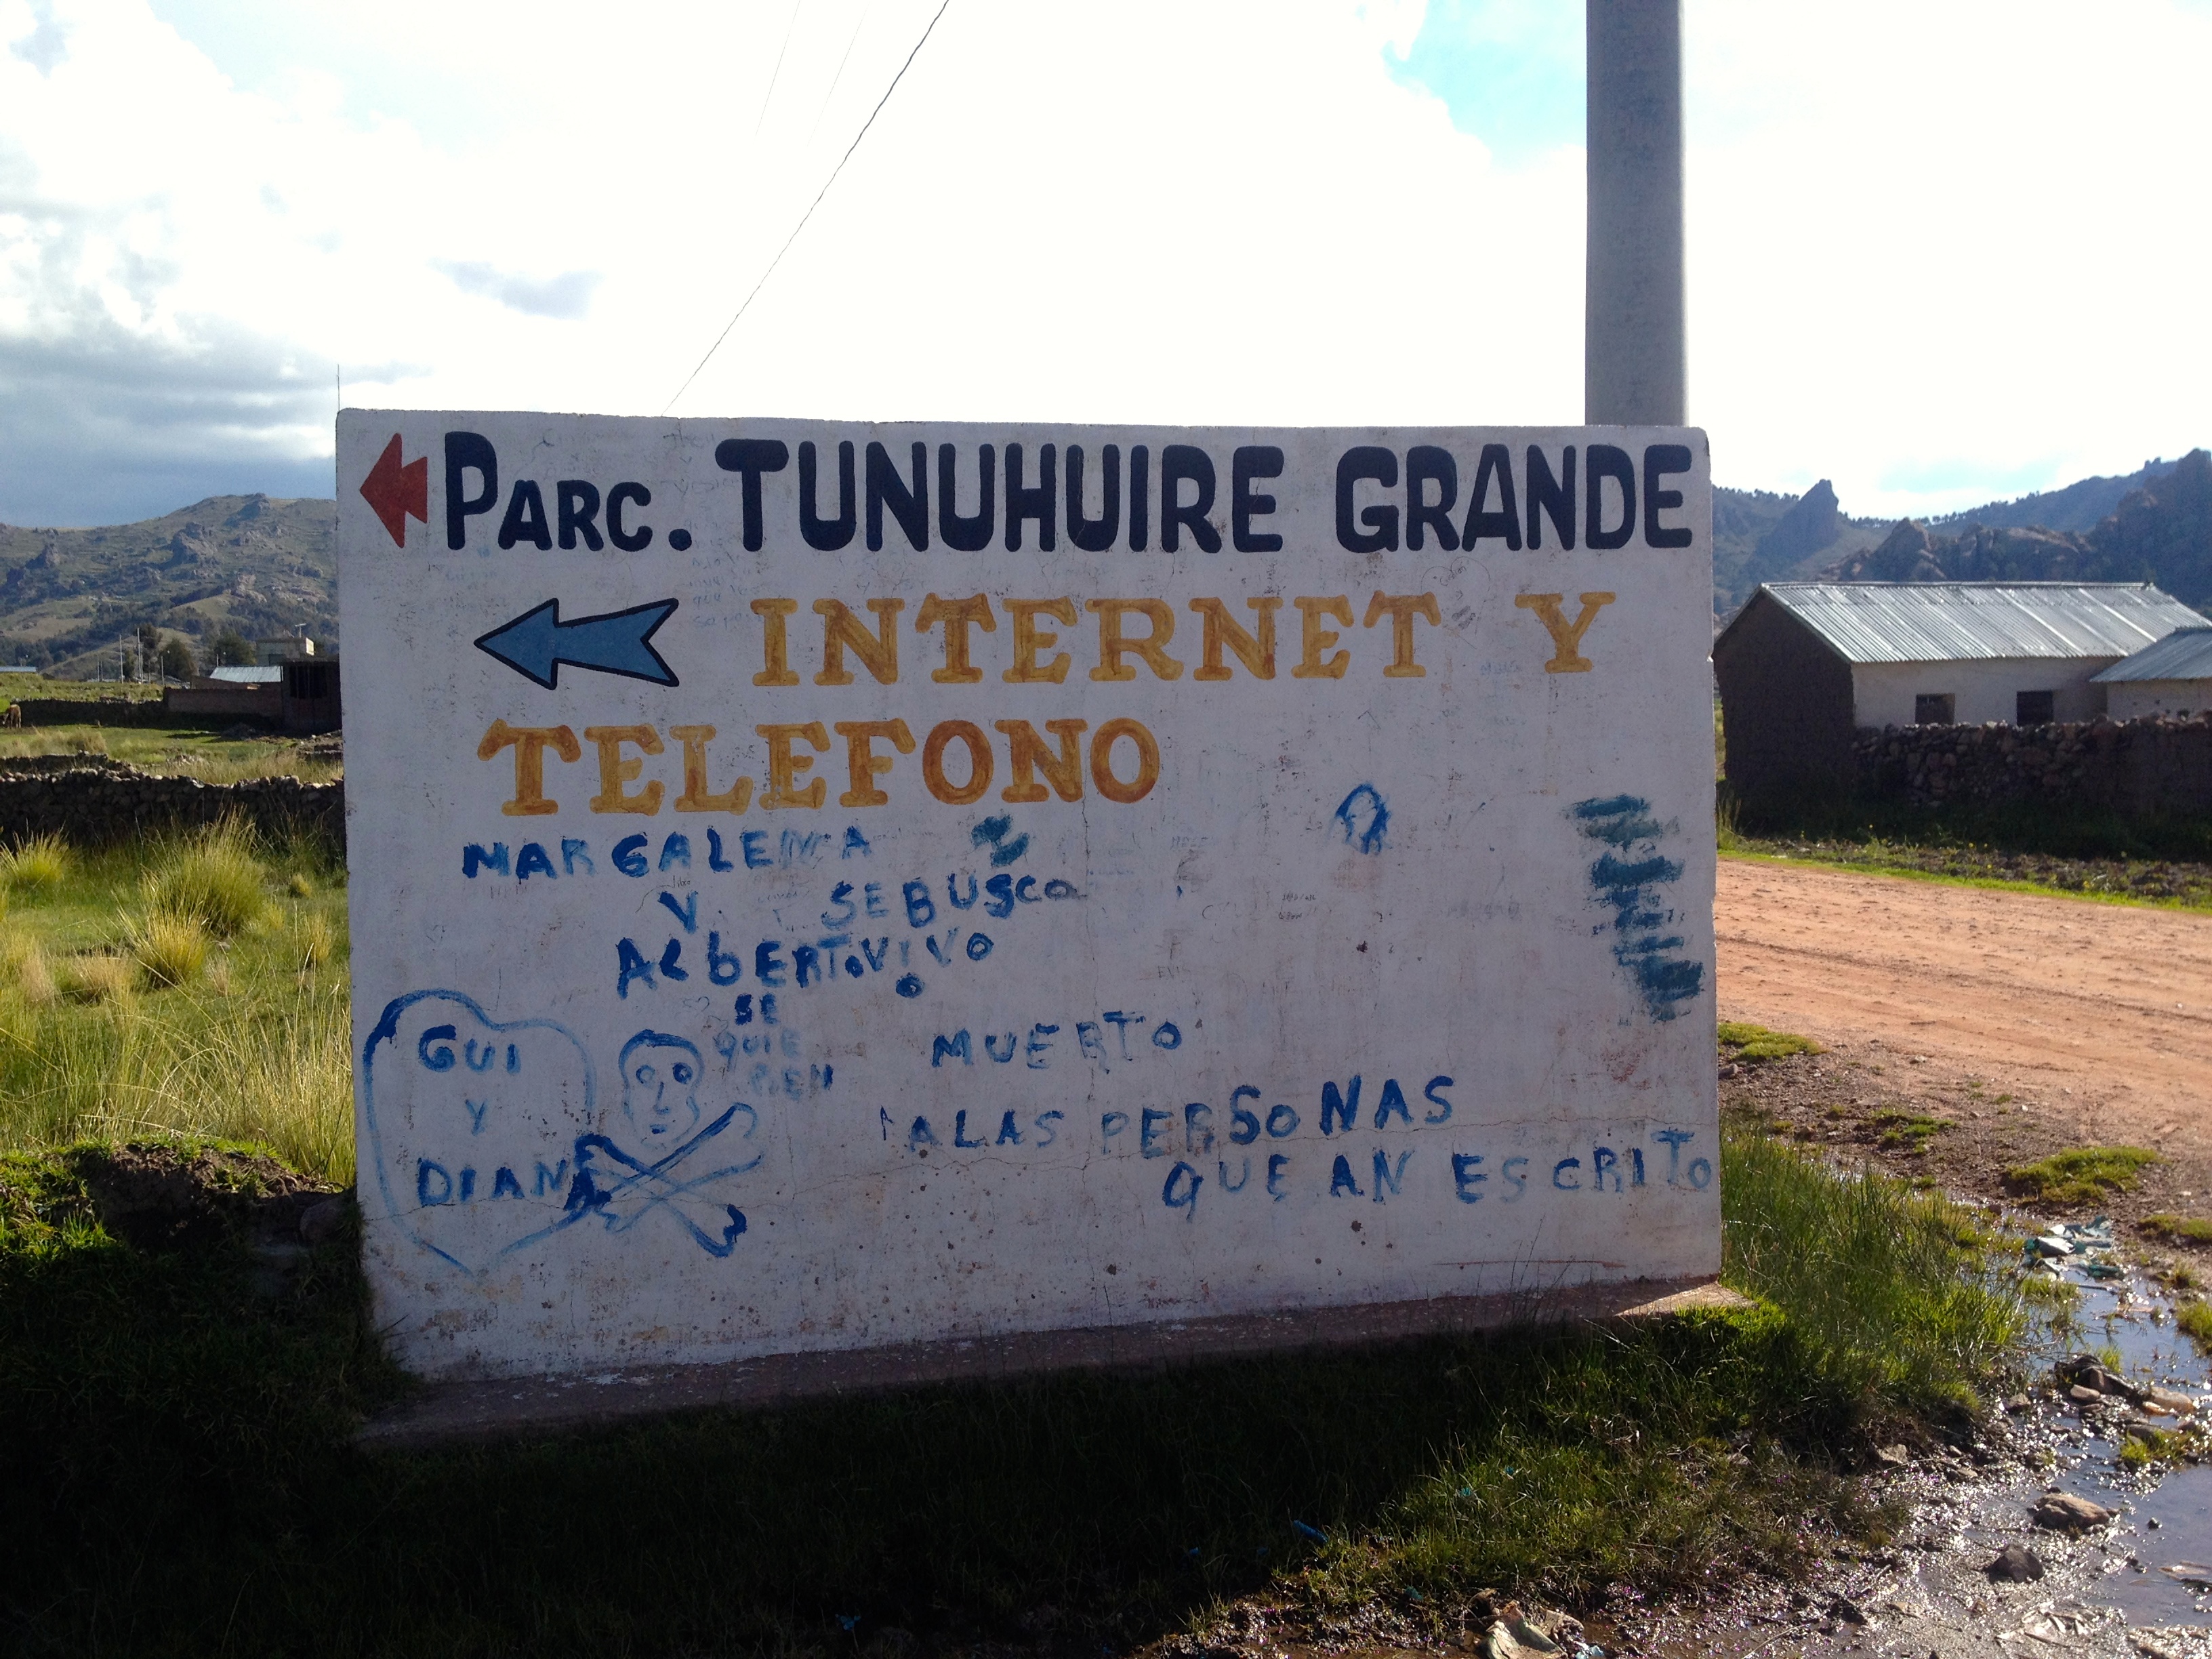 PARC. TUNUHUIRE GRANDE
INTERNET Y
TELEFONO
MARGALENA
Y SE BUSCA
ALBERTO VIVO
O
SE
QUIE
REN
MUERTO
A LAS PERSONAS
QUE AN ESCRITO
GUI
Y
DIANA